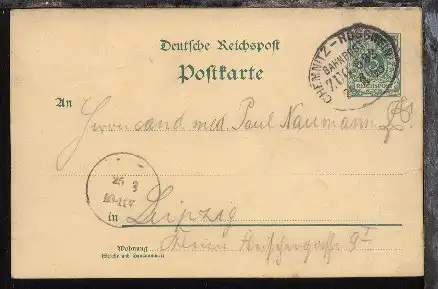 Deutsche Reichspost
Postkarte
CHEMNITZ-ROSSWEIN
BAHNPOST
REICHSPOST
An
Herrn cand. med. Paul Naumann
25 3
in Leipzig
Wohnung
(Straße und Hausnummer)
Kleine Fleischergasse 9 I